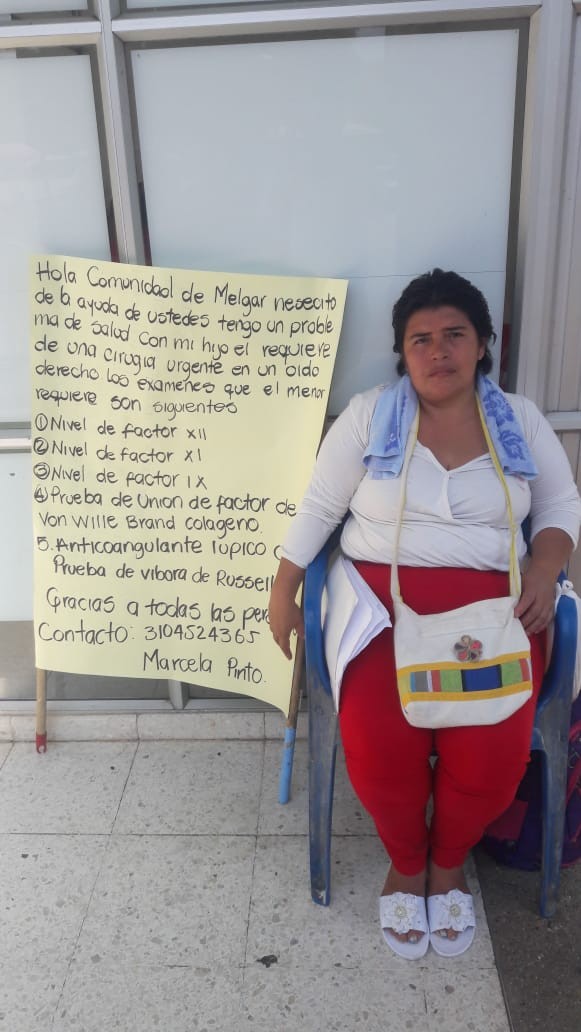 Hola Comunidad de Melgar nesecito
de la ayuda de ustedes tengo un proble
ma de salud con mi hijo el requiere
de una cirugia urgente en un oido
derecho los examenes que el menor
requiere son siguientes
① Nivel de factor XII
② Nivel de factor XI
③ Nivel de factor IX
④ Prueba de Union de factor de
Von Wille Brand colageno.
5. Anticoangulante lupico
Prueba de vibora de Russell
Gracias a todas las
Contacto: 3104524365
Marcela Pinto.